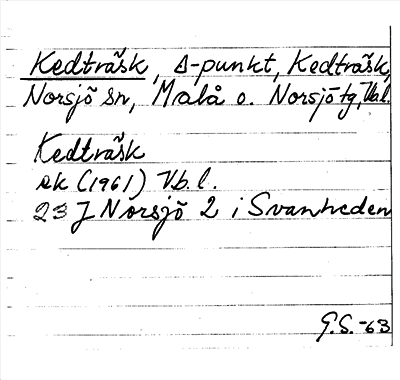 Kedträsk, Δ-punkt, Kedträsk,
Norsjö sn, Malå o. Norsjö tg, Vb.l.
Kedträsk
ek (1961) Vb.l.
23 J Norsjö 2 i Svanheden
G.S. -63